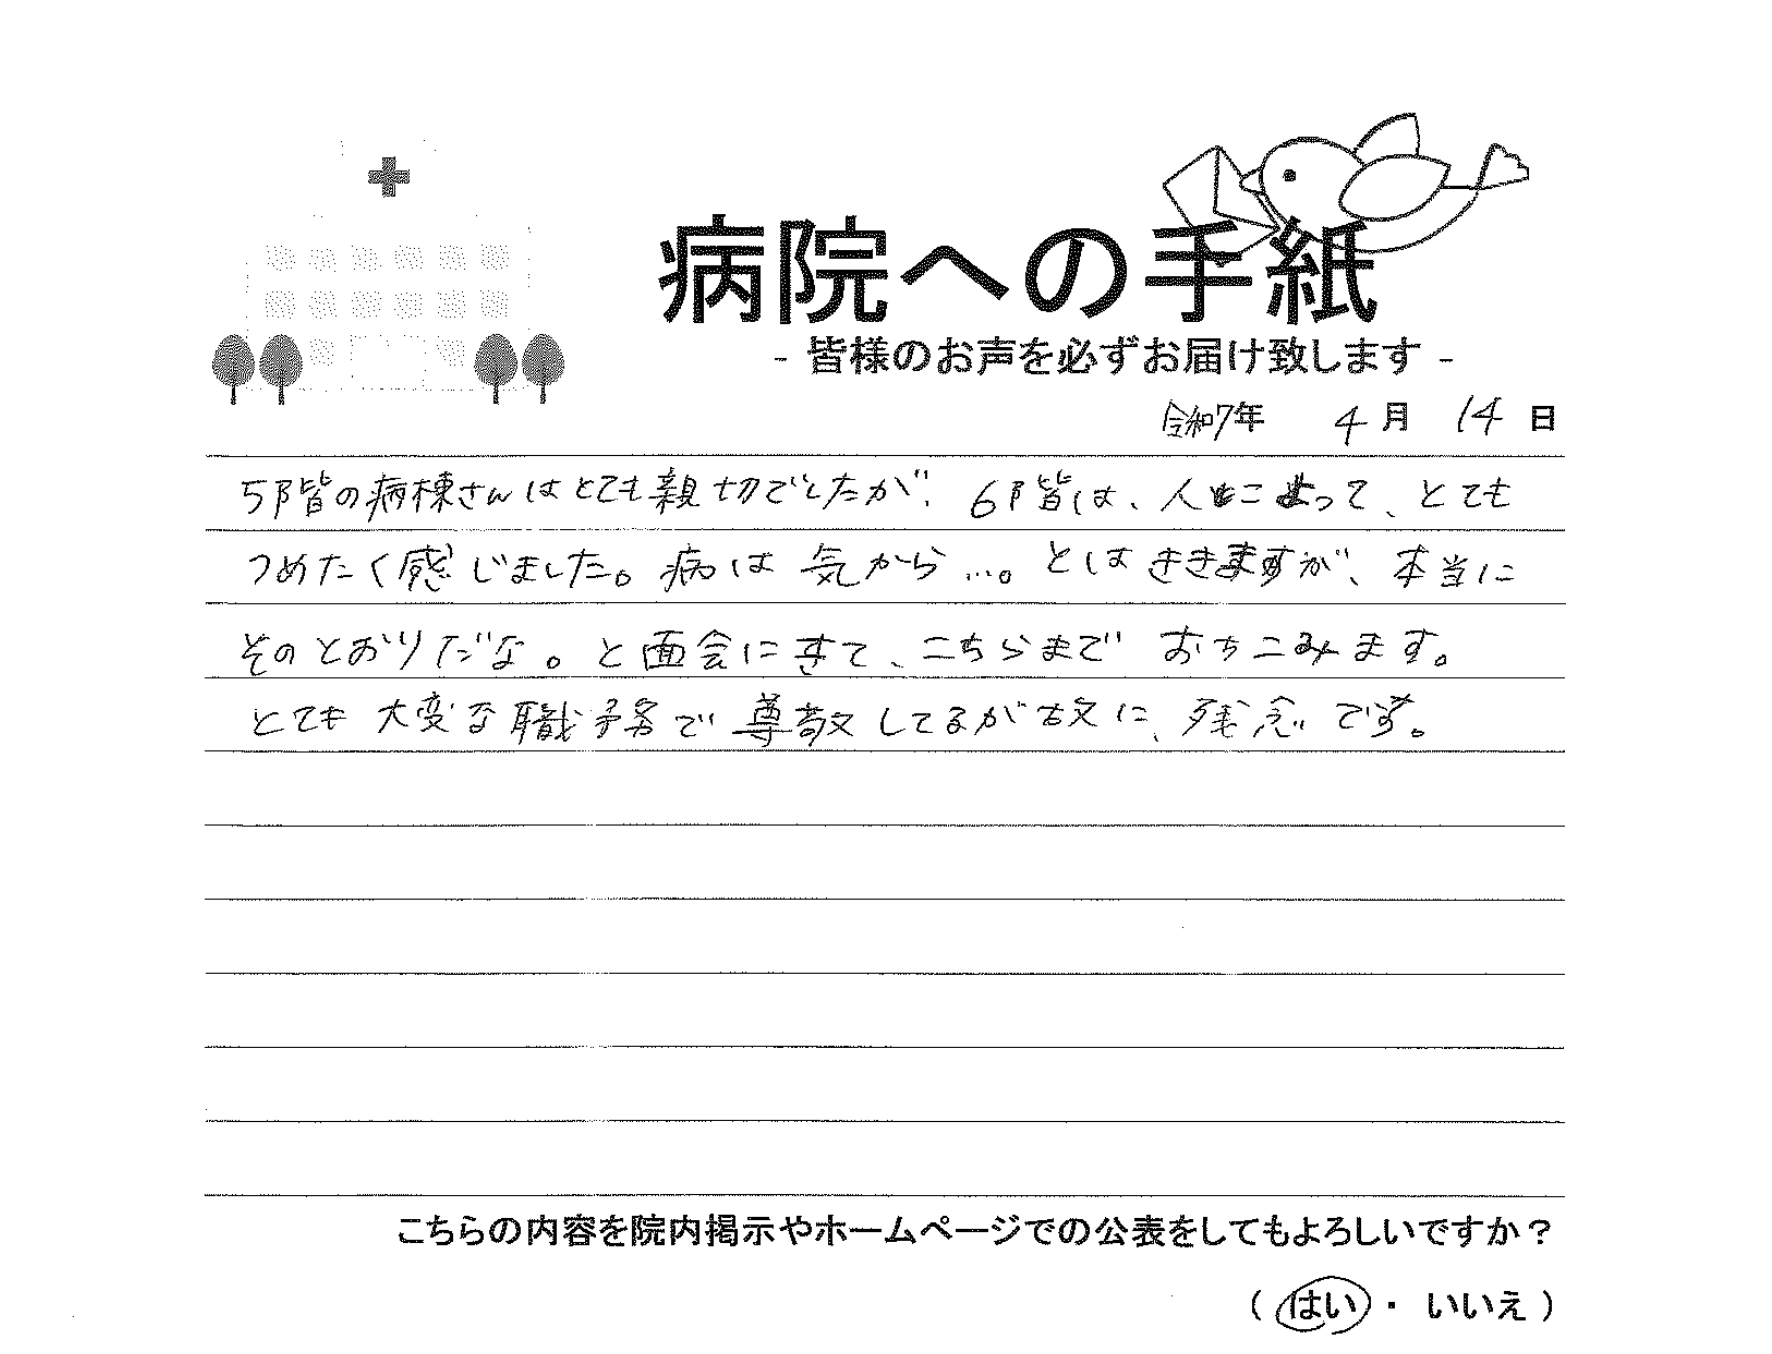 病院への手紙
- 皆様のお声を必ずお届け致します -
令和7年 4月 14日
5階の病棟さんはとても親切でしたが、6階は、人によって、とても
つめたく感じました。病は 気から…。とは ききますが、本当に
そのとおりだな。と面会にきて、こちらまで おちこみます。
とても 大変な職務で 尊敬してるが故に、残念です。
こちらの内容を院内掲示やホームページでの公表をしてもよろしいですか？
（ はい ・ いいえ ）